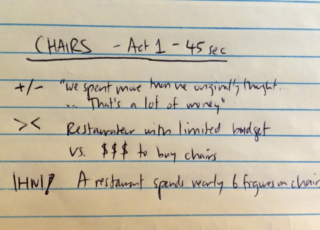 CHAIRS - Act 1 - 45 sec
+/- "we spent more than we originally thought...
... That's a lot of money"
>< Restaurateur with limited budget
vs. $$$ to buy chairs
IHNI? A restaurant spends nearly 6 figures on chair